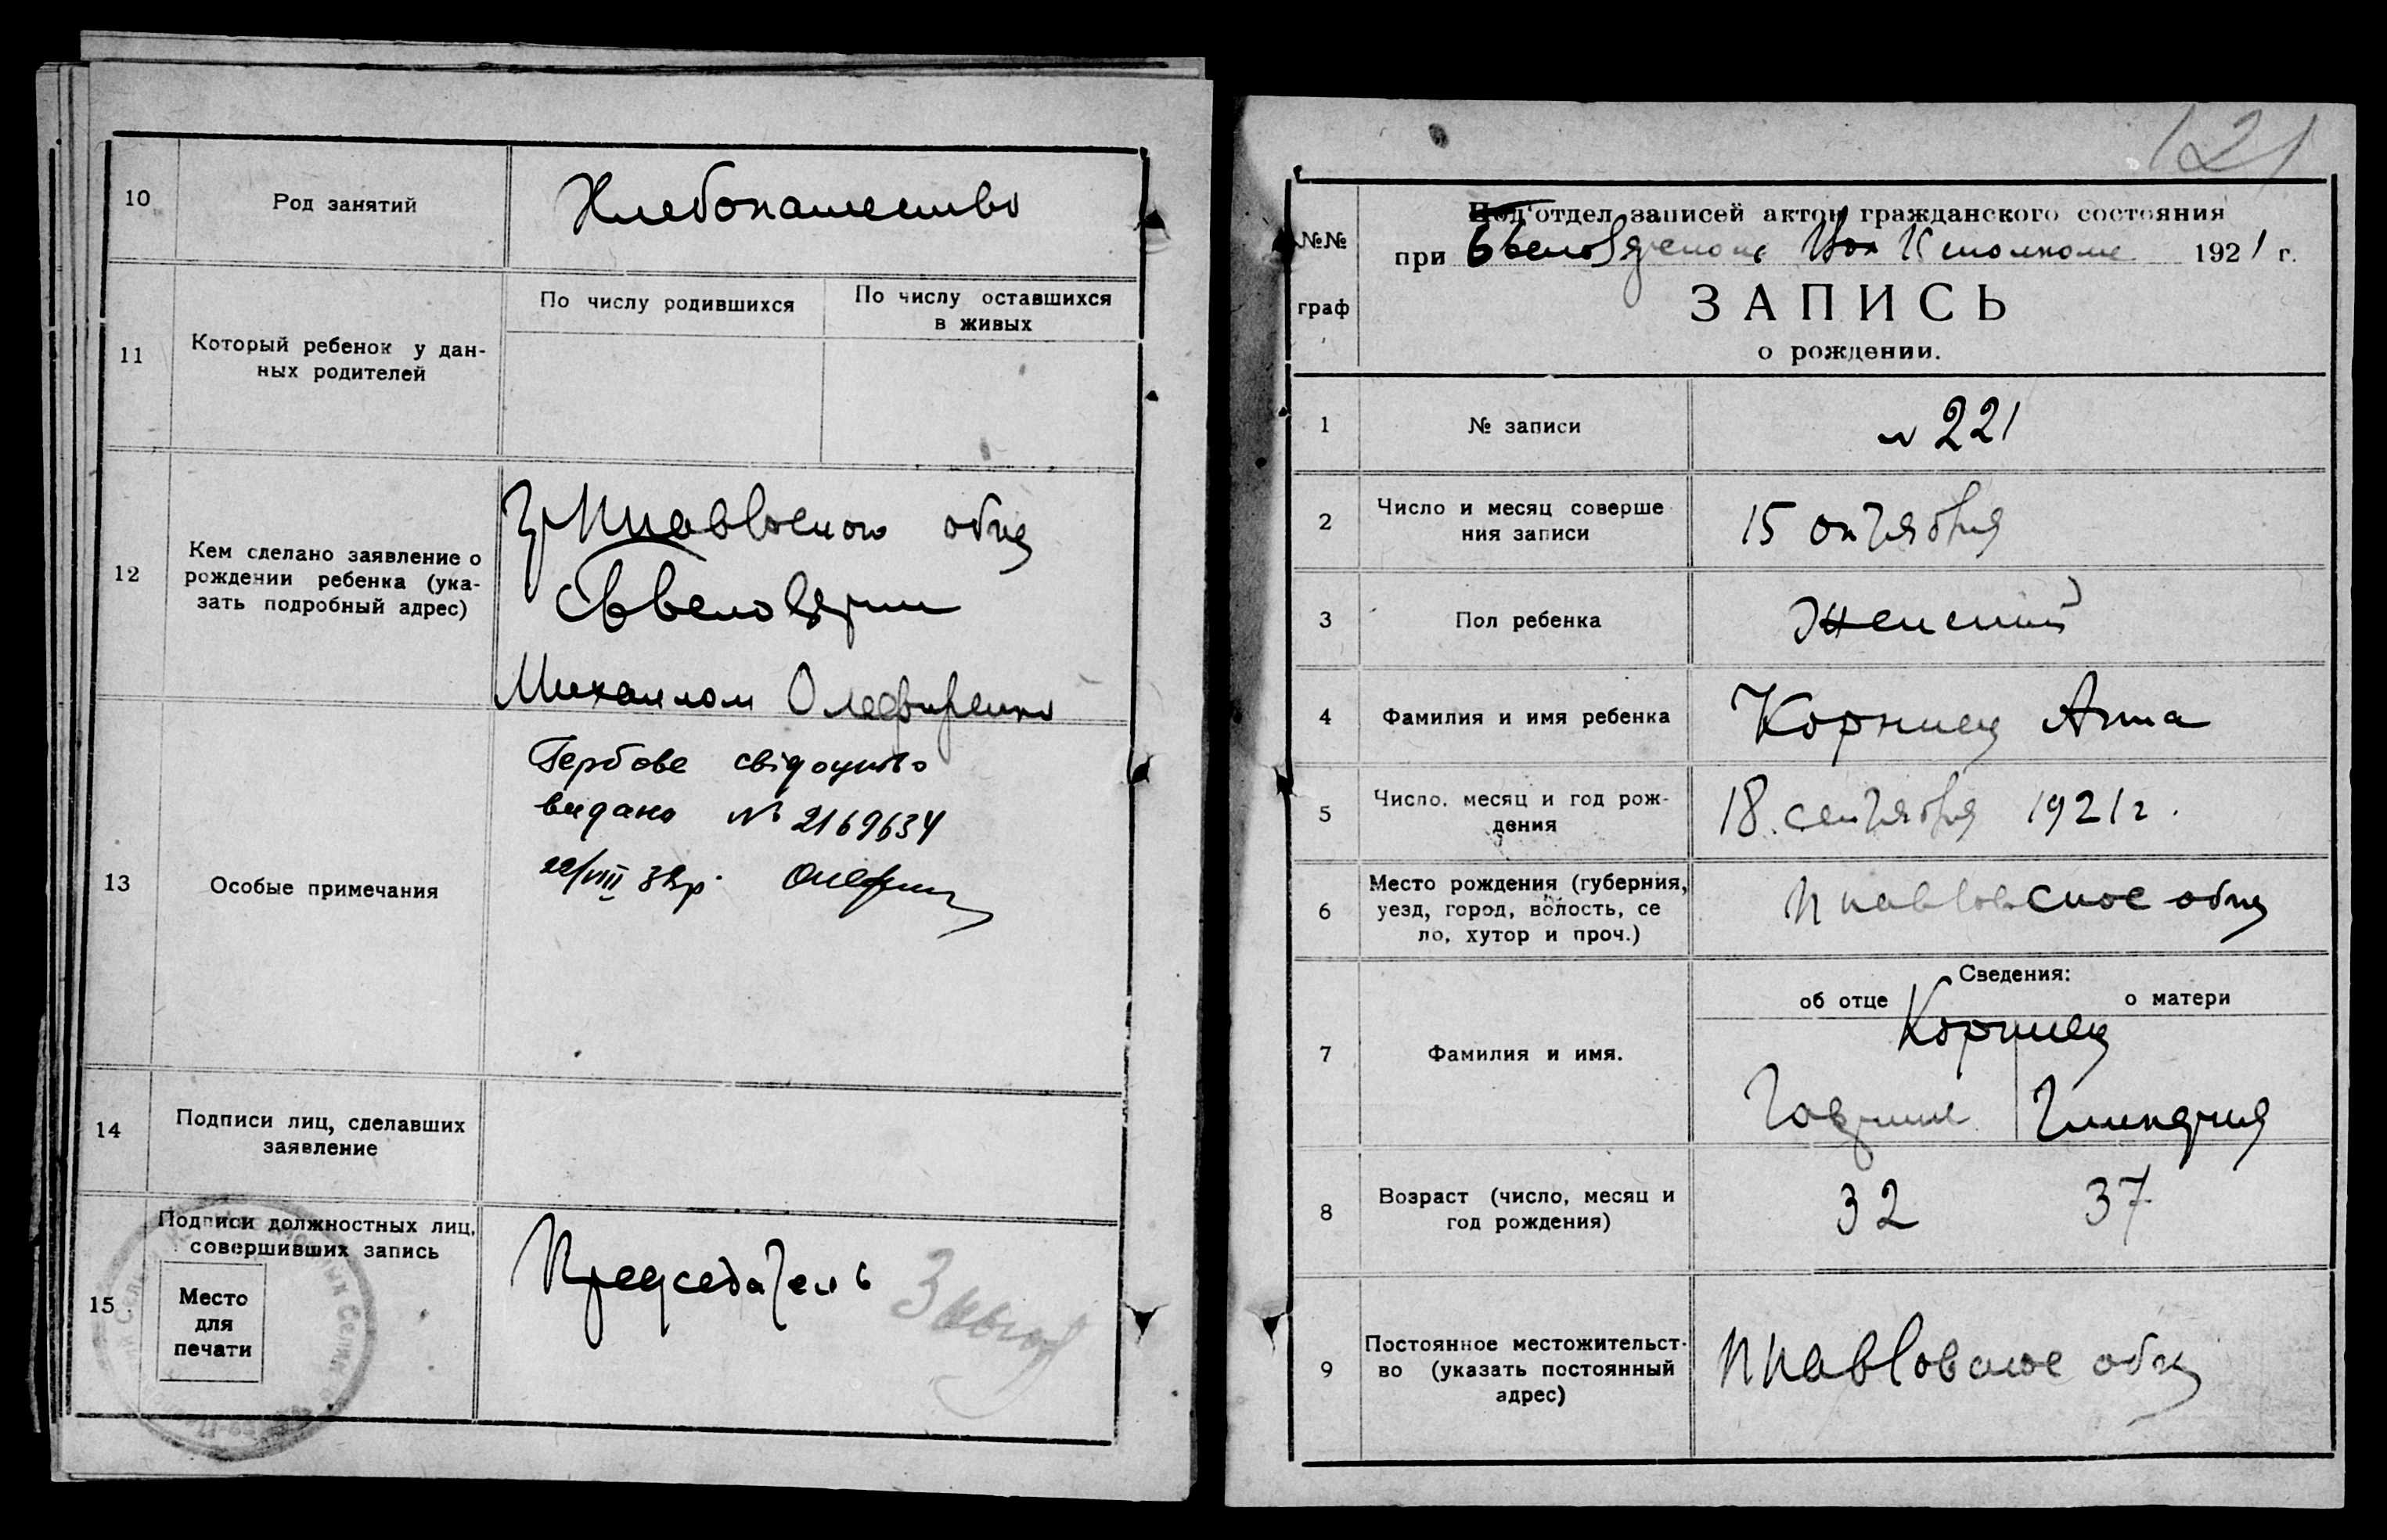 10
Род занятий
Хлебопашество
11
Который ребенок у дан-
ных родителей
По числу родившихся
По числу оставшихся
в живых
12
Кем сделано заявление о
рождении ребенка (ука-
зать подробный адрес)
обще
Михаилом Олефиренко
13
Особые примечания
Гербове свідоцтво
видано № 2169634
22/VIII
14
Подписи лиц, сделавших
заявление
15
Подписи должностных лиц,
совершивших запись
Место
для
печати
Председатель
121
№№
граф
Под'отдел записей актов гражданского состояния
при Исполкоме 1921 г.
ЗАПИСЬ
о рождении.
1
№ записи
№ 221
2
Число и месяц соверше
ния записи
15 октября
3
Пол ребенка
Женский
4
Фамилия и имя ребенка
Корниец Анна
5
Число, месяц и год рож-
дения
18 сентября 1921 г.
6
Место рождения (губерния,
уезд, город, волость, се
ло, хутор и проч.)
Сведения:
об отце
о матери
7
Фамилия и имя.
Корниец
8
Возраст (число, месяц и
год рождения)
32
37
9
Постоянное местожительст-
во (указать постоянный
адрес)